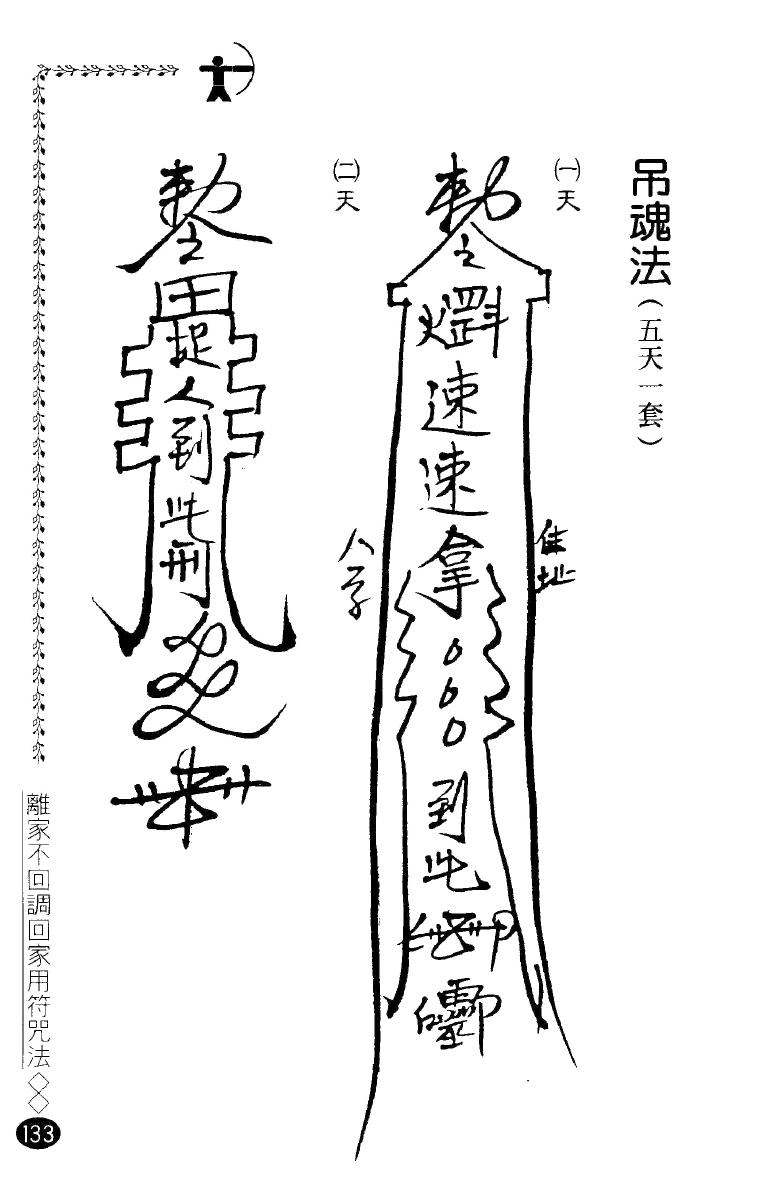 吊魂法（五天一套）
㈠天
勅令
速速拿
到此
住址
八字
㈡天
勅令
捉人到此
離家不回調回家用符咒法
133